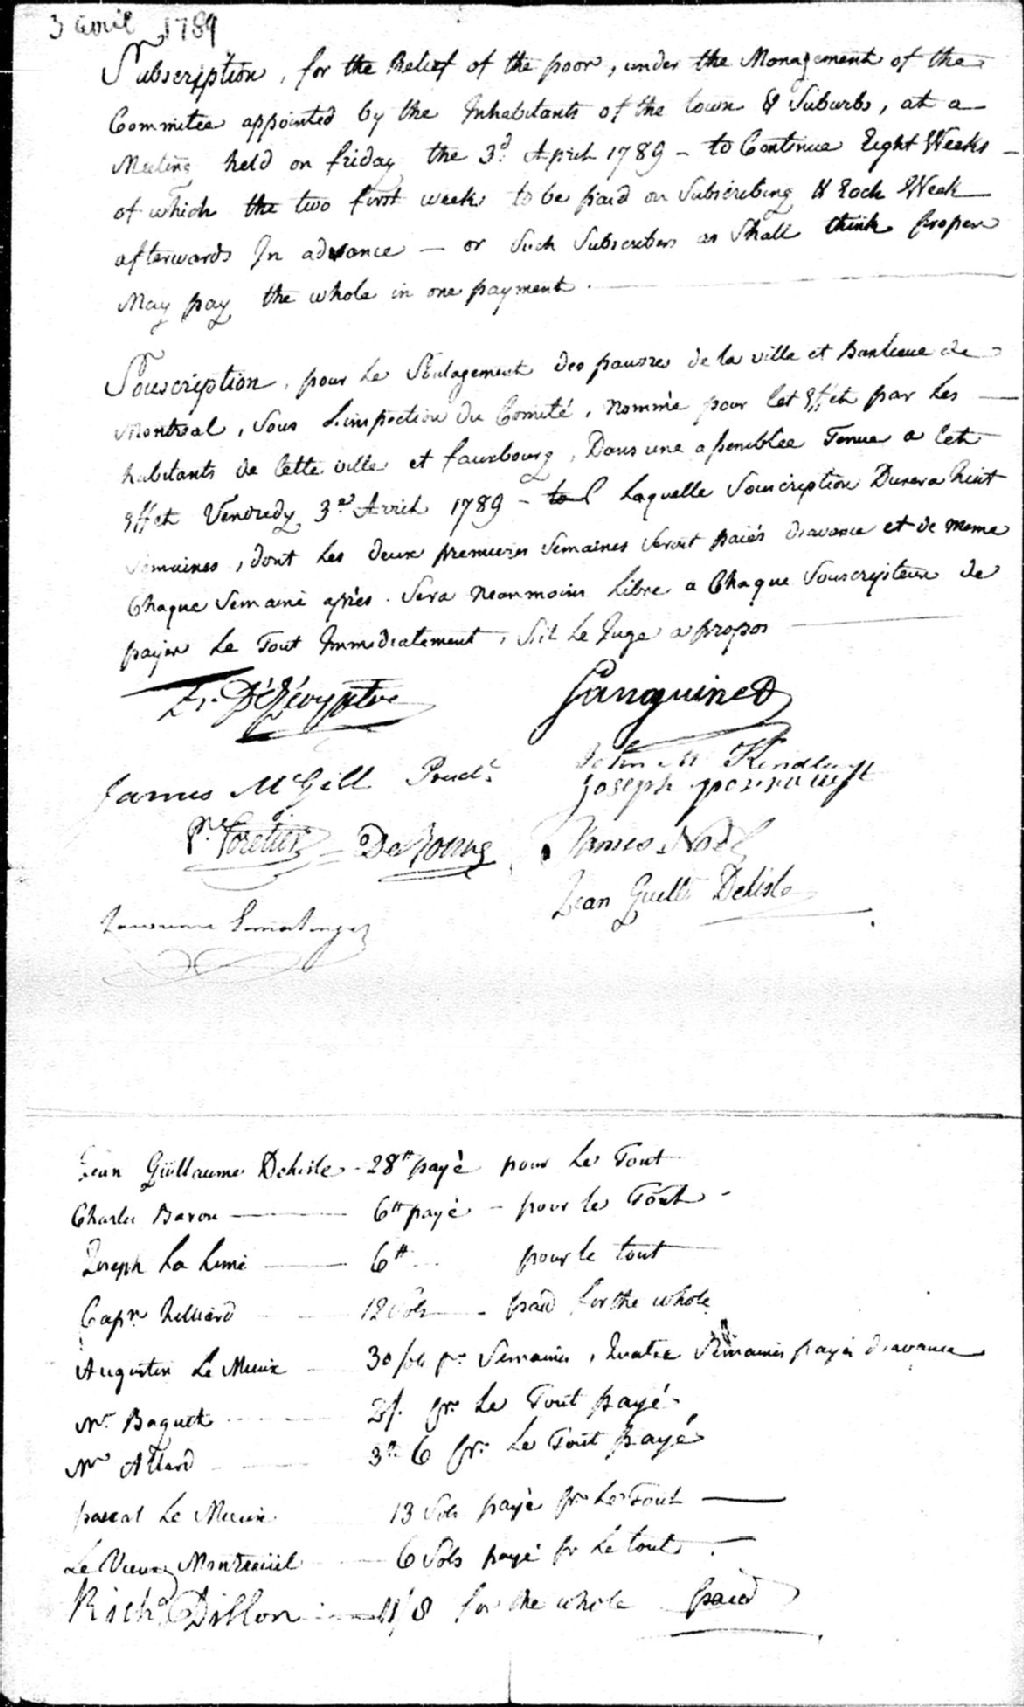 3 avril 1789
Subscription, for the Relief of the poor, under the Management of the
Committee appointed by the Inhabitants of the town & Suburbs, at a
Meeting held on friday the 3d. April 1789 - to Continue Eight Weeks -
of which the two first weeks to be paid on Subscribing & Each Week
afterwards In advance - or Such Subscribers as Shall think proper
May pay the whole in one payment.
Souscription, pour Le Soulagement des pauvres de la ville et Banlieue de
Montreal, Sous L'inspection du Comité, Nommée pour Cet Effet par Les
habitants de Cette ville et fauxbourg, Dans une assemblée Tenue a Cet
Effet Vendredy 3e. Avril 1789 - Laquelle Souscription Durera huit
Semaines, dont Les deux premieres Semaines Seront paiés d'avance et de meme
Chaque Semaine après. Sera Neanmoins Libre a Chaque Souscripteur de
payer Le Tout Immediatement, S'il Le Juge a propos
Sanguinet
James McGill Presdt.
John M
Joseph
Pre. Foretier
James Noël
Jean Guillm Delisle
Jean Guillaume Delisle - 28tt payé pour Le Tout
Charles Baron 6tt payé - pour le Tout -
Joseph La 6tt pour le tout
Capn. 12 Sols paid for the whole
Augustin Le 30 sols pr Semaines, Quatre Semaines payés d'avance
Mr. Baquet pr. Le Tout payé
Mr Allard 3tt 6 pr. Le Tout payé
pascal Le 13 Sols payé pr Le Tout
Montreuil 6 Sols payé pr Le tout
Richd Dillon 11/8 for the whole paid